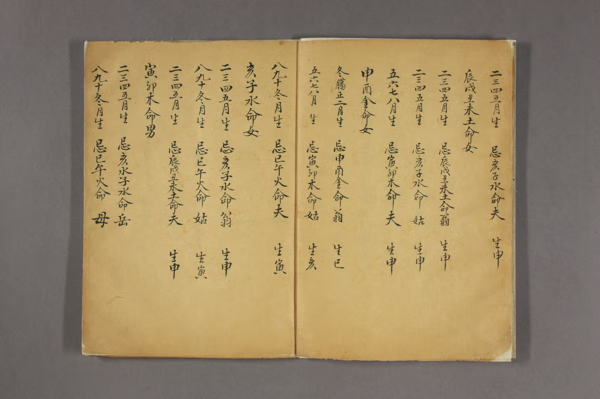 二三四五月生 忌亥子水命夫 生申
辰戌丑未土命女
二三四五月生 忌辰戌丑未土命翁 生申
二三四五月生 忌亥子水命姑 生申
五六七八月生 忌寅卯木命夫 生申
申酉金命女
冬臘正二月生 忌申酉金命翁 生巳
五六七八月生 忌寅卯木命姑 生亥
八九十冬月生 忌巳午火命夫 生寅
亥子水命女
二三四五月生 忌亥子水命翁 生申
八九十冬月生 忌巳午火命姑 生寅
二三四五月生 忌辰戌丑未土命夫 生申
寅卯木命男
二三四五月生 忌亥子水命岳
八九十冬月生 忌巳午火命母